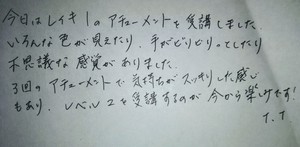 今日はレイキ1のアチューメントを受講しました。
いろんな色が見えたり、手がどりどりっとしたり
不思議な感覚がありました。
3回のアチューメントで気持ちがスッキリした感じ
もあり、レベル2を受講するのが今から楽しみです!
T.T